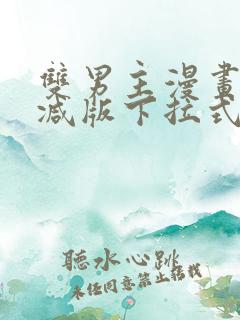 雙男主漫畫
減版下拉式
聽水心跳
未經同意禁止搭載